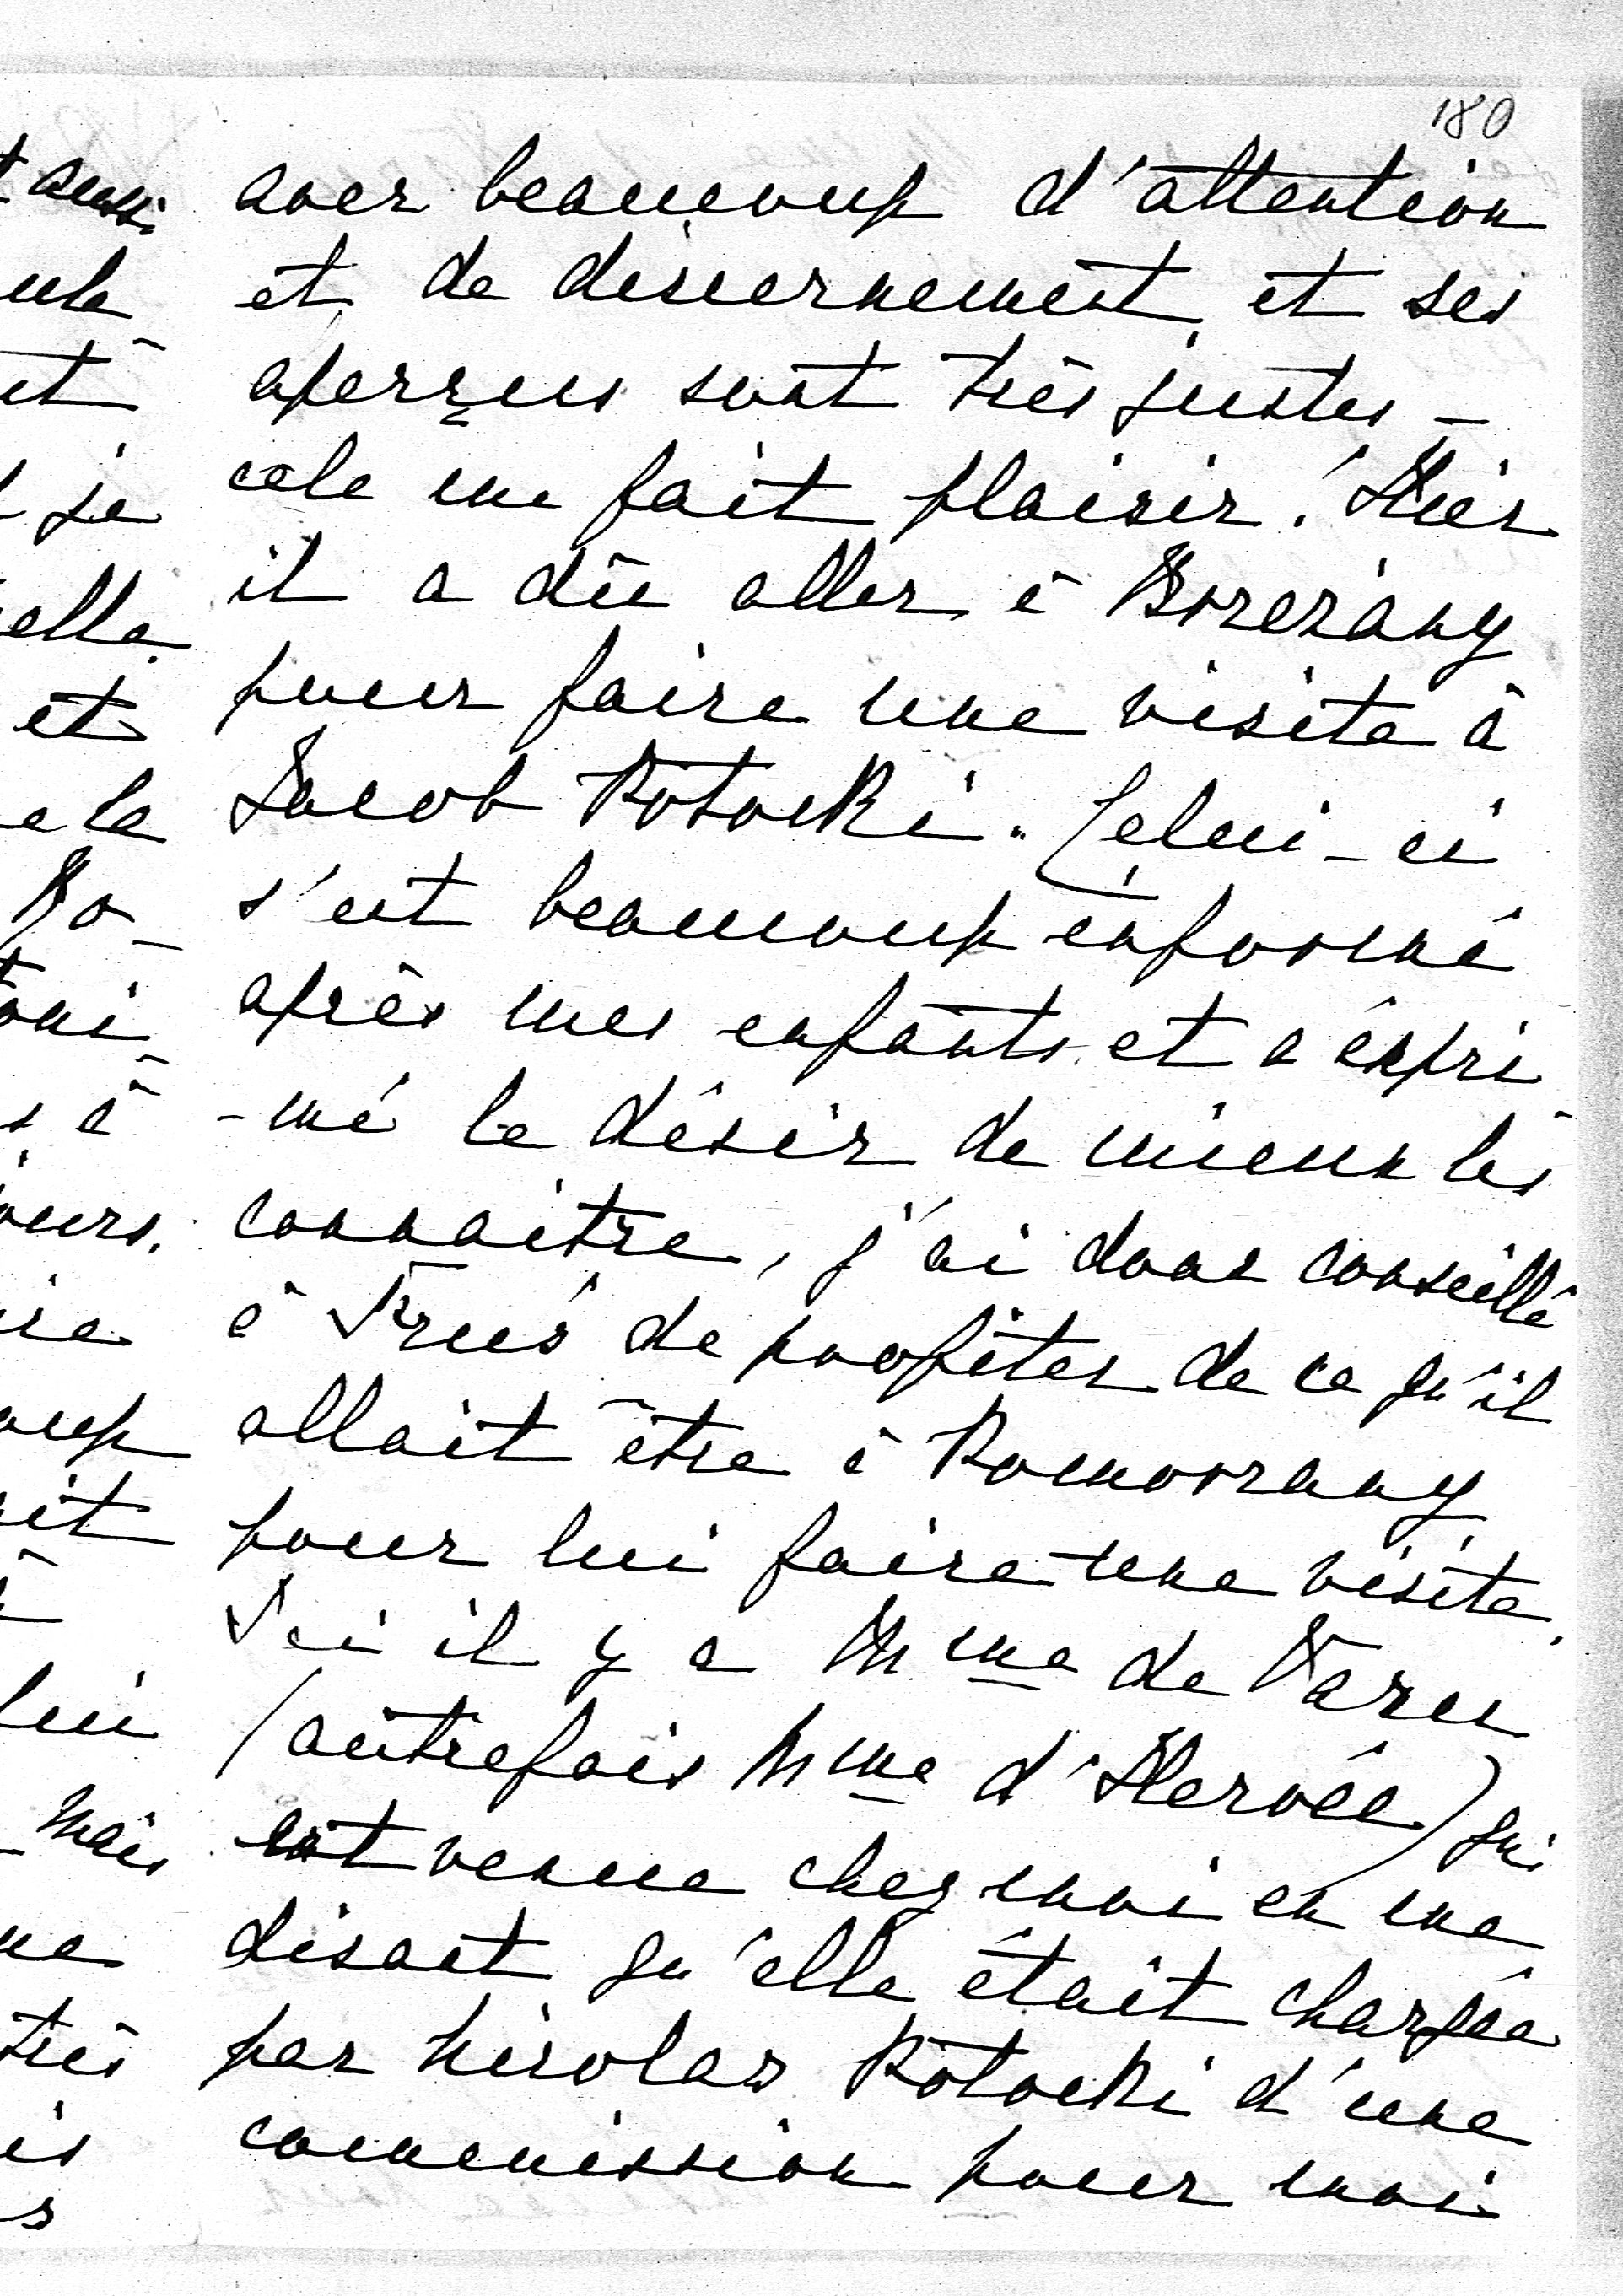 180
avec beaucoup d'attention
et de discernement et ses
aperçus sont très justes –
cela me fait plaisir. Hier
il a dû aller à Brzezany
pour faire une visite à
Jacob Potocki. Celui-ci
s'est beaucoup informé
après mes enfants et a expri
-mé le désir de mieux les
connaitre, j'ai donc conseillé
à Frus de profiter de ce qu'il
allait être à Pomorzany
pour lui faire une visite.
Ici il y a Mme de Varu
(autrefois Mme d'Hervée) qui
est venue chez moi en me
disant qu'elle était chargée
par Nicolas Potocki d'une
commission pour moi